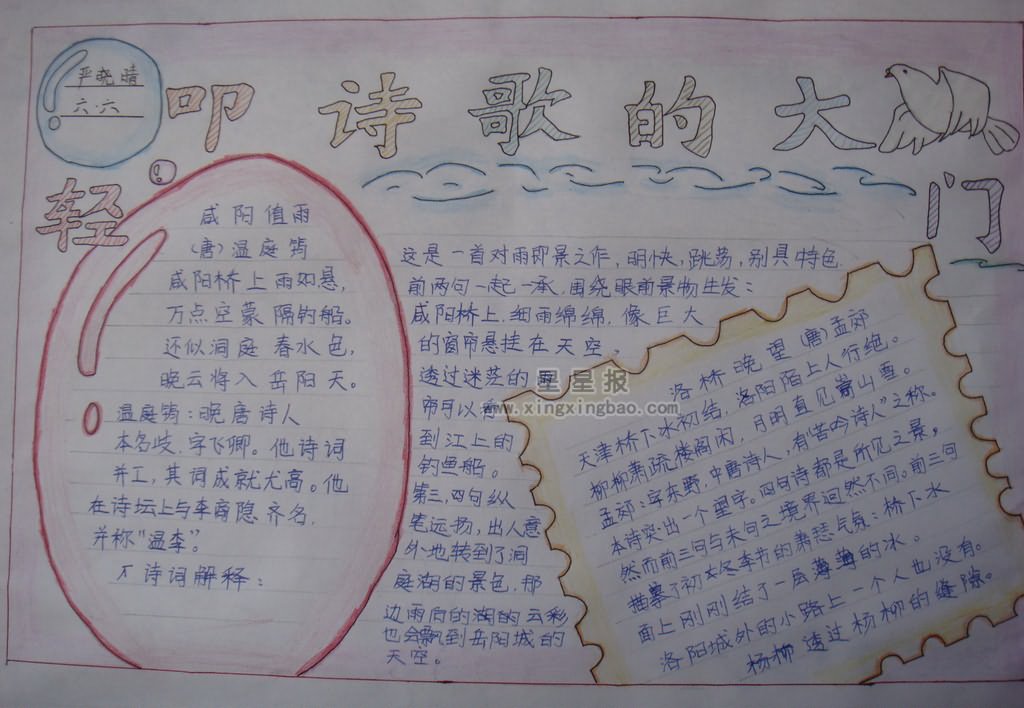 严晓晴
六.六
轻叩诗歌的大门
咸阳值雨
(唐)温庭筠
咸阳桥上雨如悬,
万点空蒙隔钓船。
还似洞庭春水色,
晚云将入岳阳天。
温庭筠:晚唐诗人
本名岐,字飞卿。他诗词
并工,其词成就尤高。他
在诗坛上与李商隐齐名,
并称“温李”。
诗词解释:
这是一首对雨即景之作,明快,跳荡,别具特色.
前两句一起一承,围绕眼前景物生发:
咸阳桥上,细雨绵绵,像巨大
的窗帘悬挂在天空、
透过迷茫的雨
帘可以看
到江上的
钓鱼船。
第三,四句纵
笔远扬,出人意
外地转到了洞
庭湖的景色,那
边雨后的湖的云彩
也会飘到岳阳城的
天空。
洛桥晚望(唐)孟郊
天津桥下水初结,洛阳陌上人行绝。
柳柳萧疏楼阁闲,月明直见嵩山雪。
孟郊:字东野,中唐诗人,有“苦吟诗人”之称。
本诗突出一个望字。四句诗都是所见之景,
然而前三句与末句之境界迥然不同。前三句
描摹了初冬季节的萧瑟气氛:桥下水
面上刚刚结了一层薄薄的冰。
洛阳城外的小路上一个人也没有。
杨柳透过杨柳的缝隙。
星星报
www.xingxingbao.com